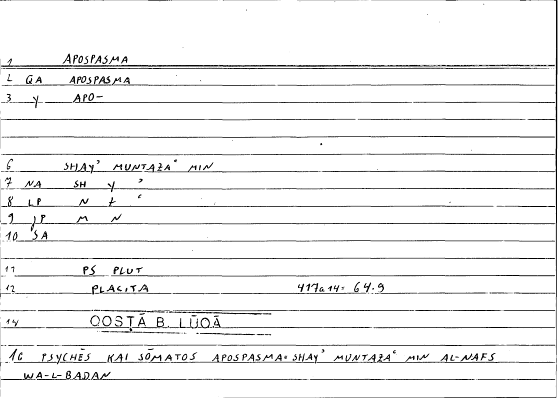 1 APOSPASMA
2 QA APOSPASMA
3 y APO-
6 SHAYʾ MUNTAZAʿ MIN
7 NA SH y ʾ
8 LP N ẓ ʿ
9 JP M N
10 SA
11 PS PLUT
12 PLACITA 417a14= 64.9
14 QOSṬĀ B. LŪQĀ
16 PSYCHĒS KAI SŌMATOS APOSPASMA= SHAYʾ MUNTAZAʿ MIN AL-NAFS
WA-L-BADAN